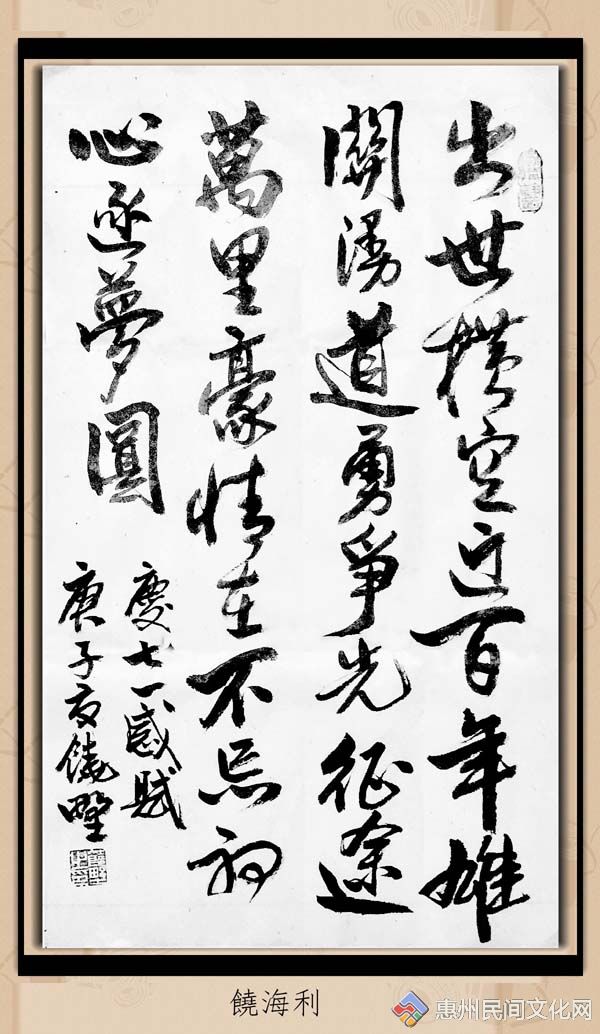 出世橫空近百年雄
關漫道勇爭先征途
萬里豪情在不忘初
心逐夢圓
慶七一感賦
庚子夏饒
饒海利
惠州民间文化网